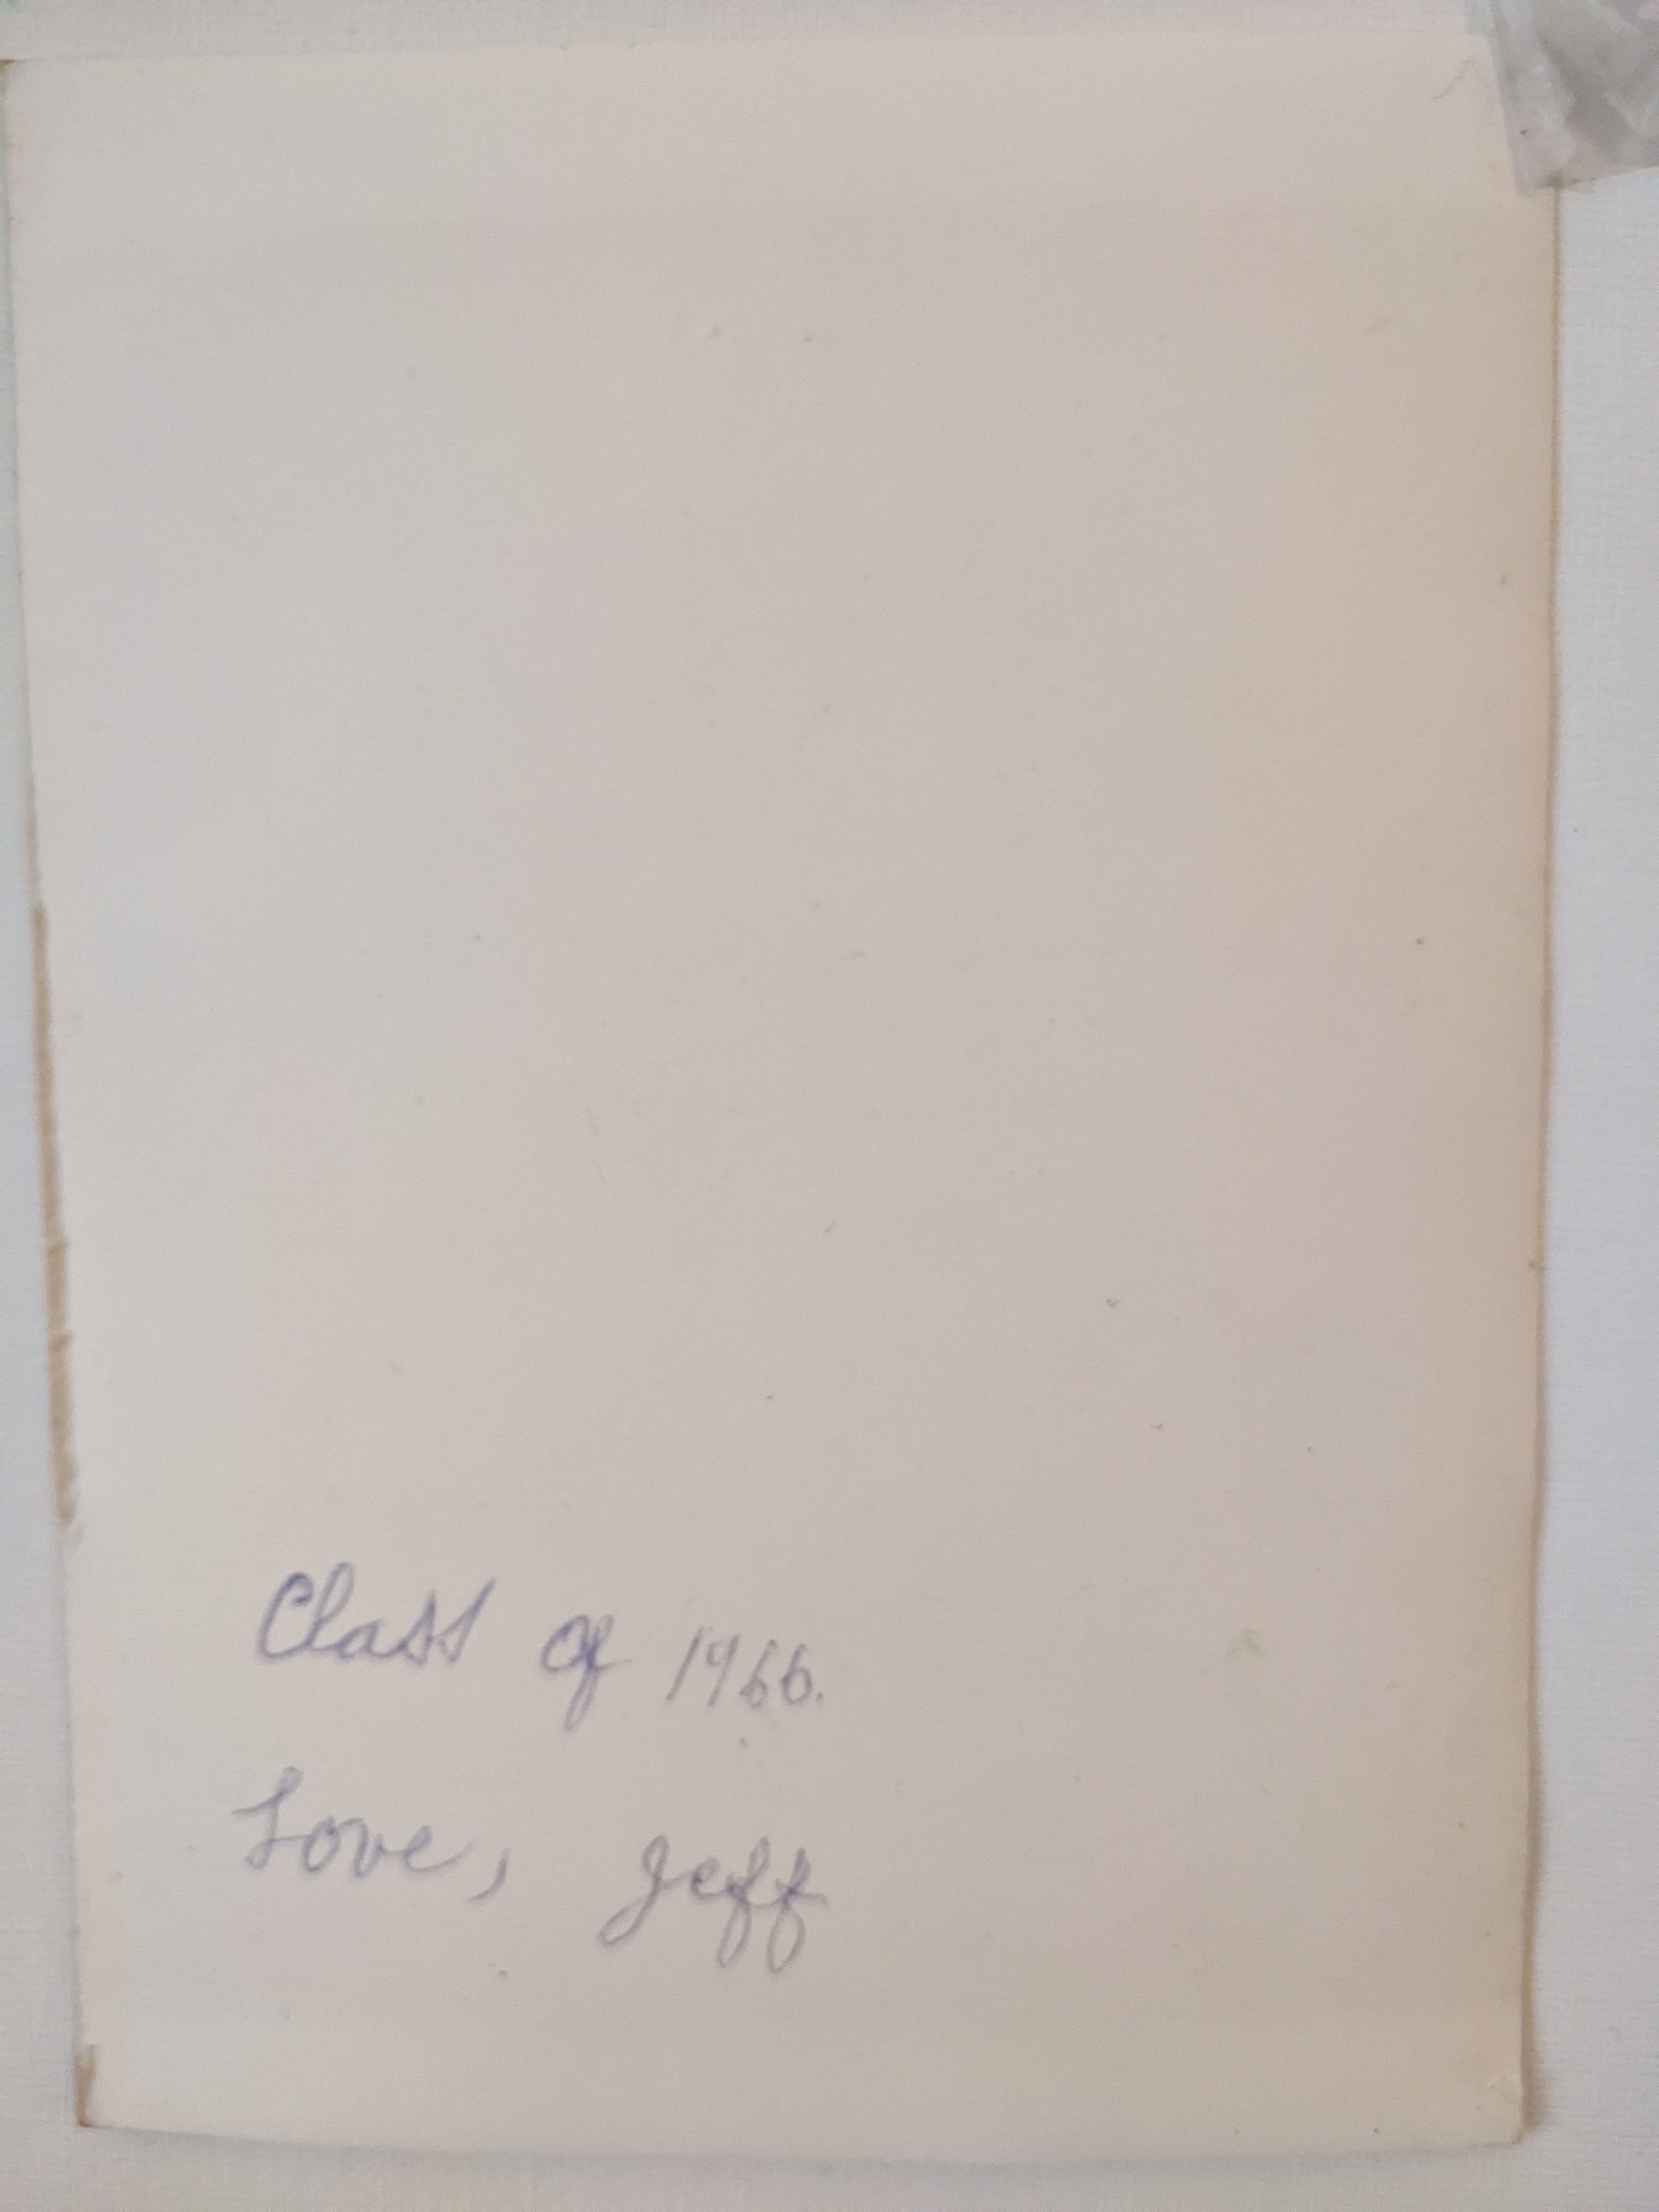 Class of 1966.
Love, Jeff